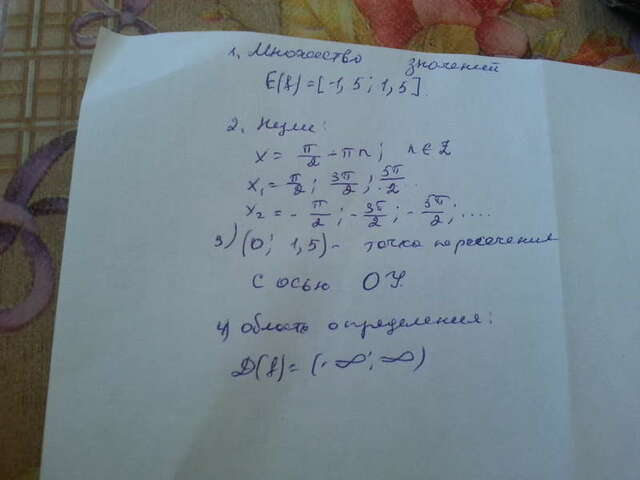 1. Множество значений
E(f) = [-1,5; 1,5].
2. Нули:
x = π/2 - πn; n ∈ Z
x₁ = π/2; 3π/2; 5π/2..
x₂ = - π/2; - 3π/2; - 5π/2; ....
3) (0; 1,5) - точка пересечения
с осью ОУ.
4) область определения:
D(f) = (-∞; ∞)